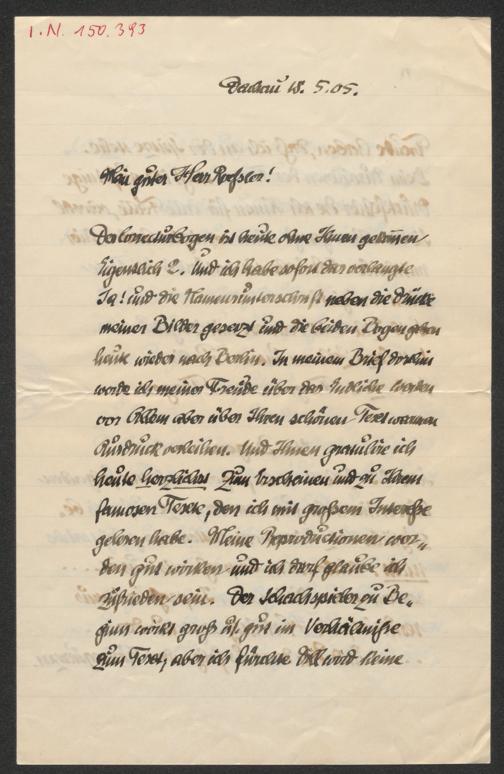 I.N. 150.393
Dachau 18. 5.05.
Mein guter Herr Roessler!
Der Correcturbogen ist heute ohne Ihnen gekommen
Eigentlich 2. Und ich habe sofort das verlangte
Ja! und die Namensunterschrift neben die Drucke
meiner Bilder gesetzt und die beiden Bogen gehen
heute wieder nach Berlin. In meinem Brief dorthin
werde ich meiner Freude über das
vor Allem aber über Ihren schönen Text warmen
Ausdruck verleihen. Und Ihnen gratulire ich
heute herzlichst zum Erscheinen und zu Ihrem
famosen Texte, den ich mit großem Interesse
gelesen habe. Meine Reproductionen wer-
den gut wirken und ich darf glaube ich
zufrieden sein. Der Schachspieler zu Be-
ginn wirkt groß u. gut im Verhältniße
zum Text, aber ich fürchte Dill wird keine